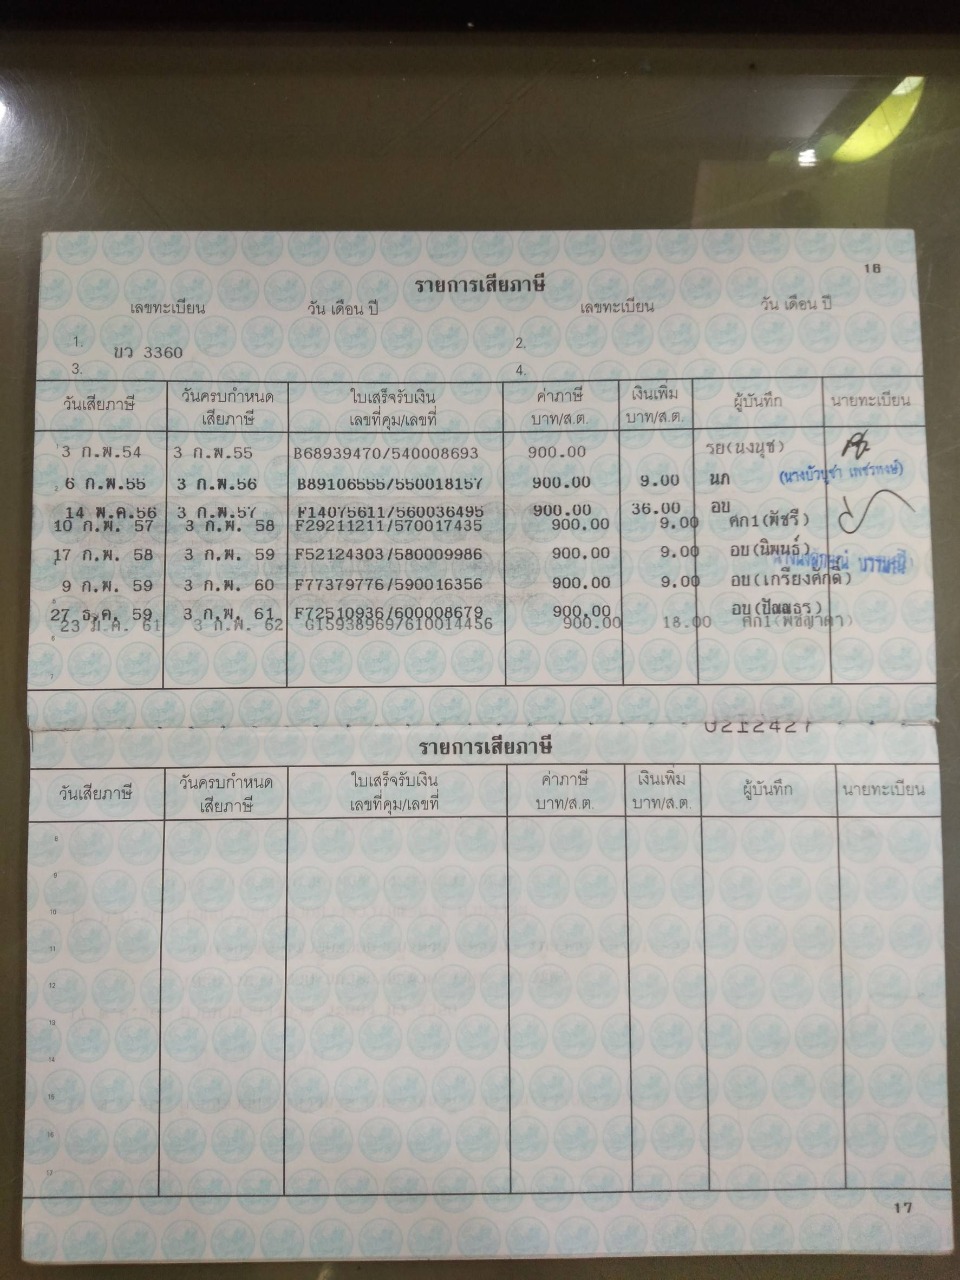 16
รายการเสียภาษี
เลขทะเบียน วัน เดือน ปี เลขทะเบียน วัน เดือน ปี
1. ขว 3360 2.
3. 4.
วันเสียภาษี วันครบกำหนดเสียภาษี ใบเสร็จรับเงิน เลขที่คุม/เลขที่ ค่าภาษี บาท/ส.ต. เงินเพิ่ม บาท/ส.ต. ผู้บันทึก นายทะเบียน
3 ก.พ.54 3 ก.พ.55 B68939470/540008693 900.00 รย(นงนุช)
6 ก.พ.55 3 ก.พ.56 B89106555/550018157 900.00 9.00 นภ
14 พ.ค.56 3 ก.พ.57 F14075611/560036495 900.00 36.00 อบ
10 ก.พ. 57 3 ก.พ. 58 F29211211/570017435 900.00 9.00 ศก1(พัชรี)
17 ก.พ. 58 3 ก.พ. 59 F52124303/580009986 900.00 9.00 อบ(นิพนธ์)
9 ก.พ. 59 3 ก.พ. 60 F77379776/590016356 900.00 9.00 อบ(เกรียงศักดิ์)
27 ธ.ค. 59 3 ก.พ. 61 F72510936/600008679 900.00
23 3 ก.พ. 62 G15938969/610014456 900.00 18.00
รายการเสียภาษี
วันเสียภาษี วันครบกำหนดเสียภาษี ใบเสร็จรับเงิน เลขที่คุม/เลขที่ ค่าภาษี บาท/ส.ต. เงินเพิ่ม บาท/ส.ต. ผู้บันทึก นายทะเบียน
8
9
10
11
12
13
14
15
16
17
17